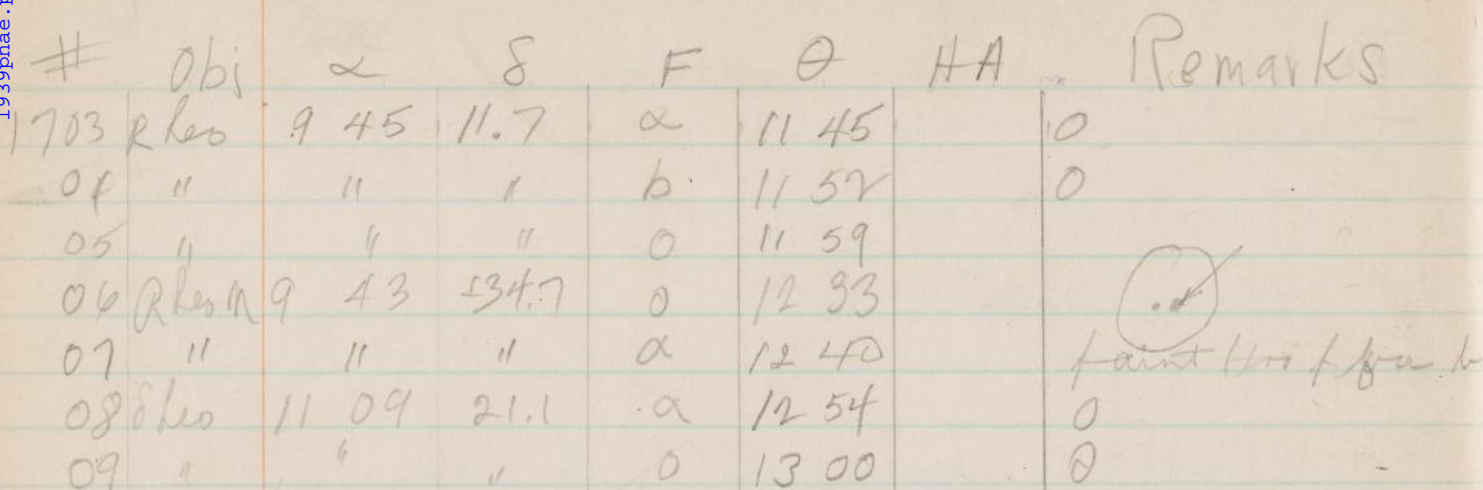 # Obj α δ F θ HA Remarks
1703 R Leo 9 45 11.7 a 11 45 0
04 " " " b 11 52 0
05 " " " 0 11 59
06 R Leo M 9 43 +34.7 0 12 33
07 " " " a 12 40 faint
08 δ Leo 11 09 21.1 a 12 54 0
09 " " " 0 13 00 0
1939pnae.p